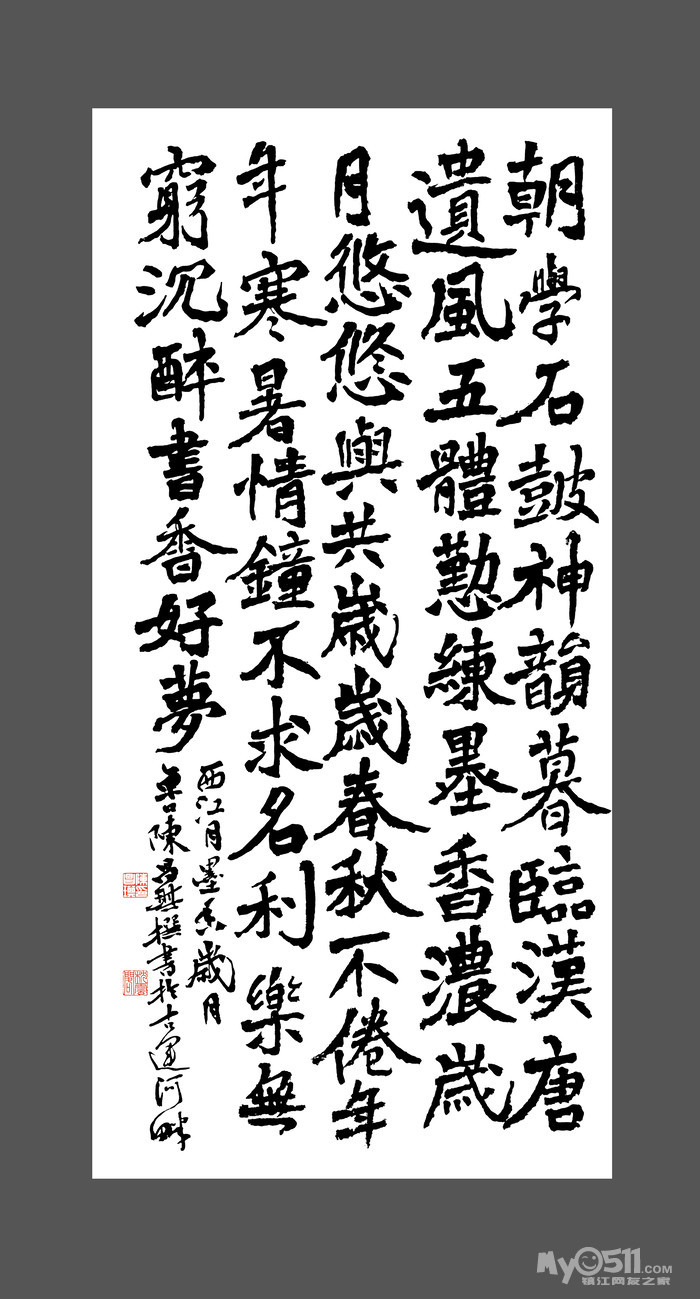 朝學石鼓神韻暮臨漢唐
遺風五體懃練墨香濃歲
月悠悠與共歲歲春秋不倦年
年寒暑情鐘不求名利樂無
窮沉醉書香好夢
西江月墨香歲月
魯陳昌撰書於古運河畔
My0511.COM
镇江网友之家